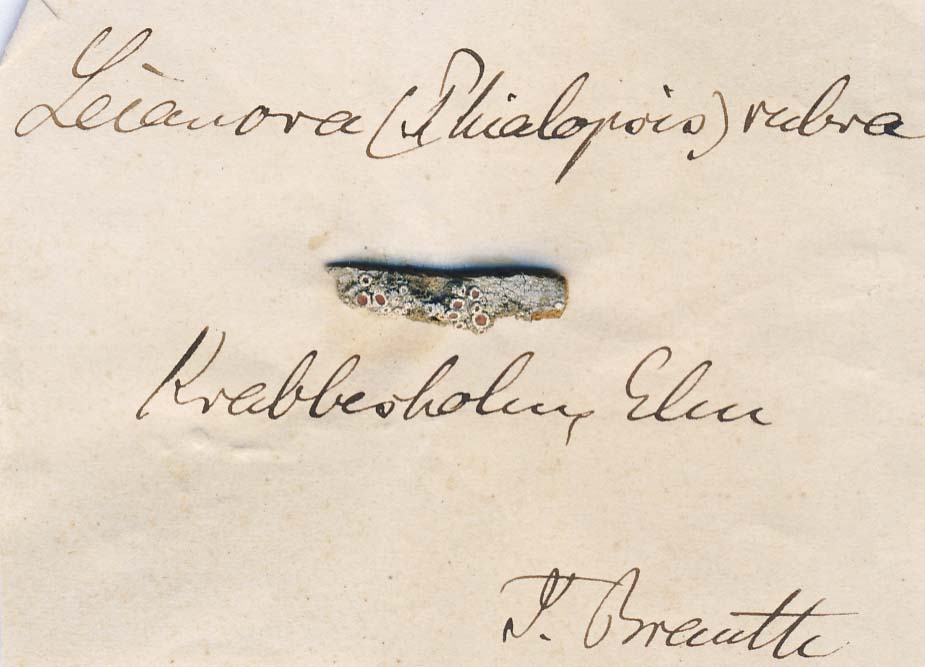 Lecanora (Phialopsis) rubra
Krabbesholm, Elm
T. Branth